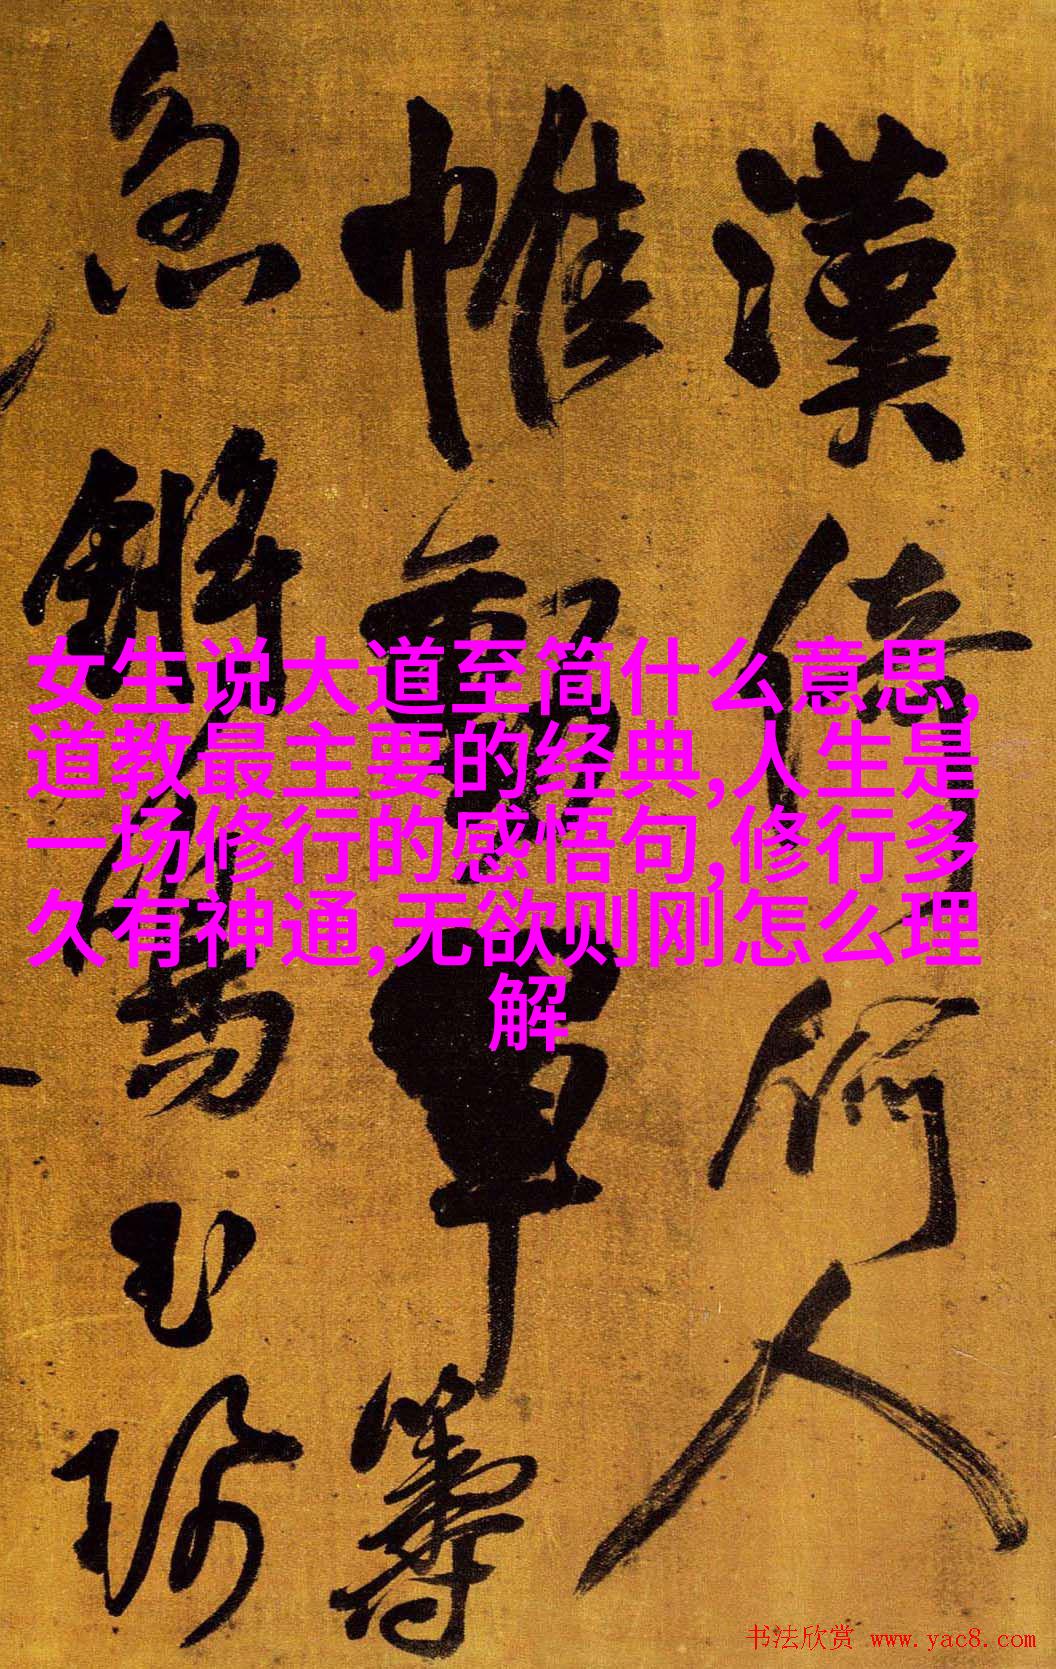 漢
倚
何
人
帷
鄭
單
籌
急
鏘
鳴
玉
珍
女生说大道至简什么意思,
道教最主要的经典,人生是
一场修行的感悟句,修行多
久有神通,无欲则刚怎么理
解
书法欣赏 www.yac8.com